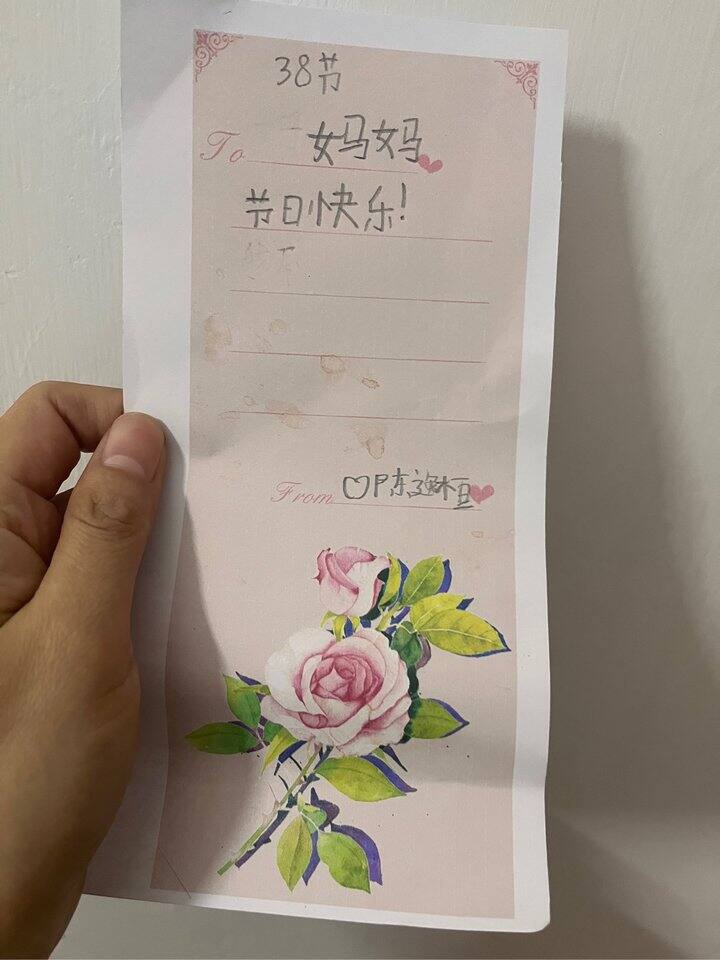 38节
To 妈妈
节日快乐!
From 陈逸桓